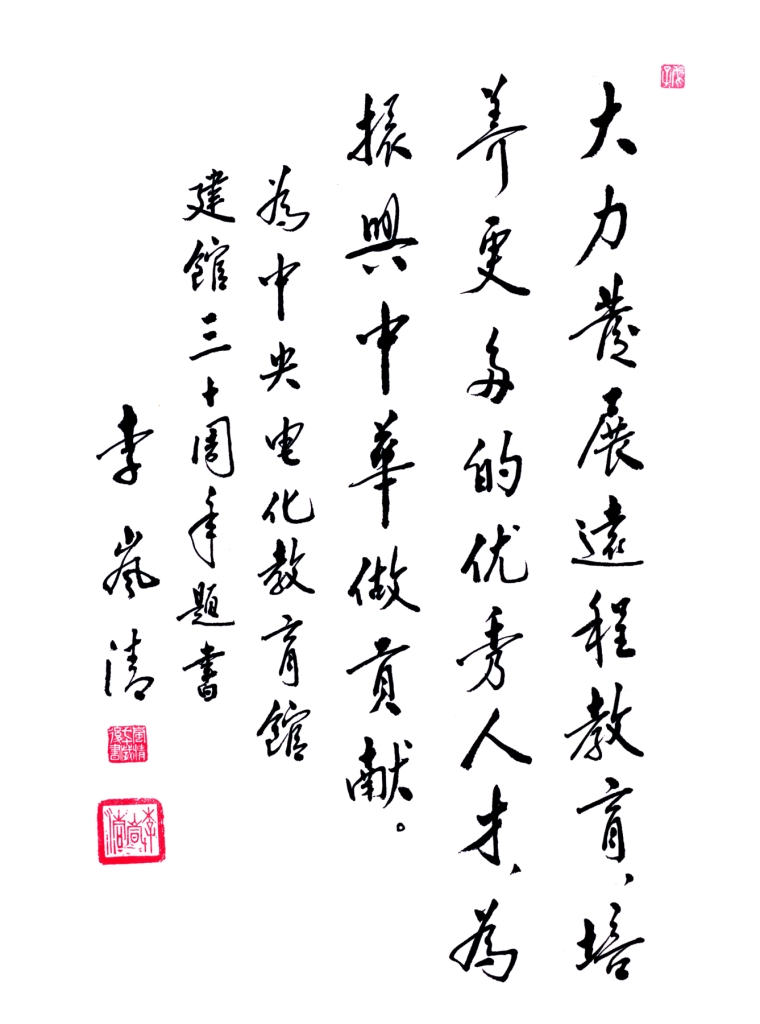 大力發展遠程教育、培
养更多的优秀人才、為
振興中華做貢献。
為中央电化教育館
建館三十周年題書
李嵐清